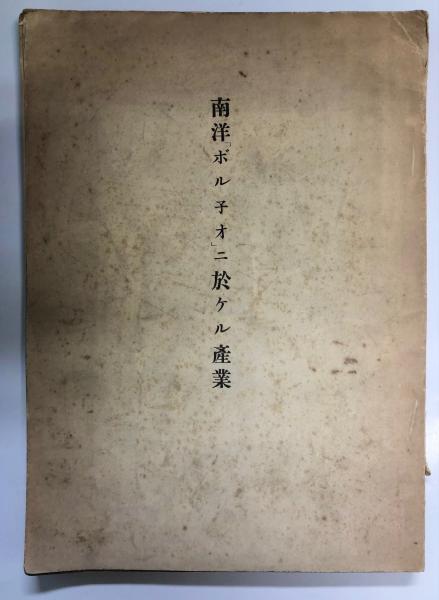 南洋「ボル子オ」ニ於ケル產業